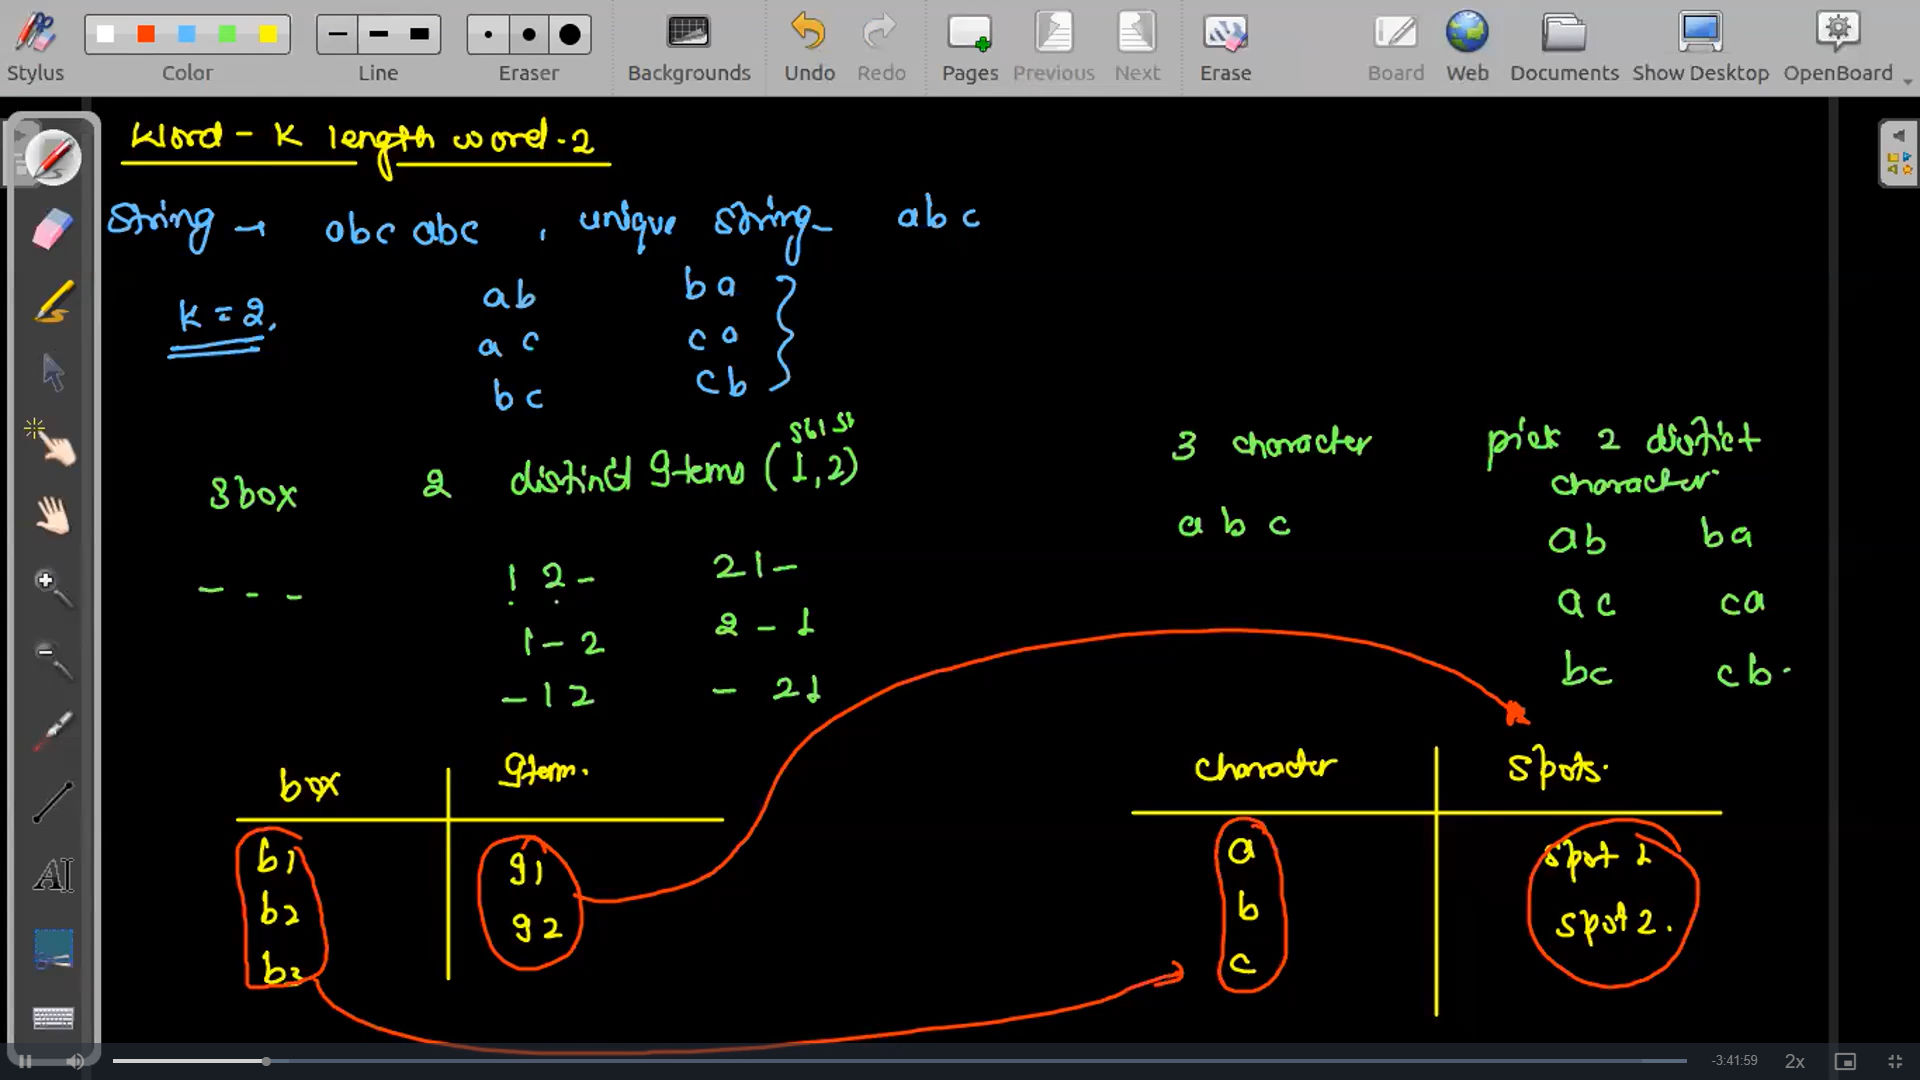 Stylus Color Line Eraser Backgrounds Undo Redo Pages Previous Next Erase Board Web Documents Show Desktop OpenBoard
Word - K length word - 2
String → abc abc , unique string - abc
K = 2,
ab ba
ac ca
bc cb
3 box 2 distinct Items (1, 2)
- - -
1 2 - 2 1 -
1 - 2 2 - 1
- 1 2 - 2 1
3 character pick 2 distict
character
a b c
ab ba
ac ca
bc cb.
box Item.
b1 g1
b2 g2
b3
character Spots.
a spot 1
b spot 2.
c
-3:41:59 2x